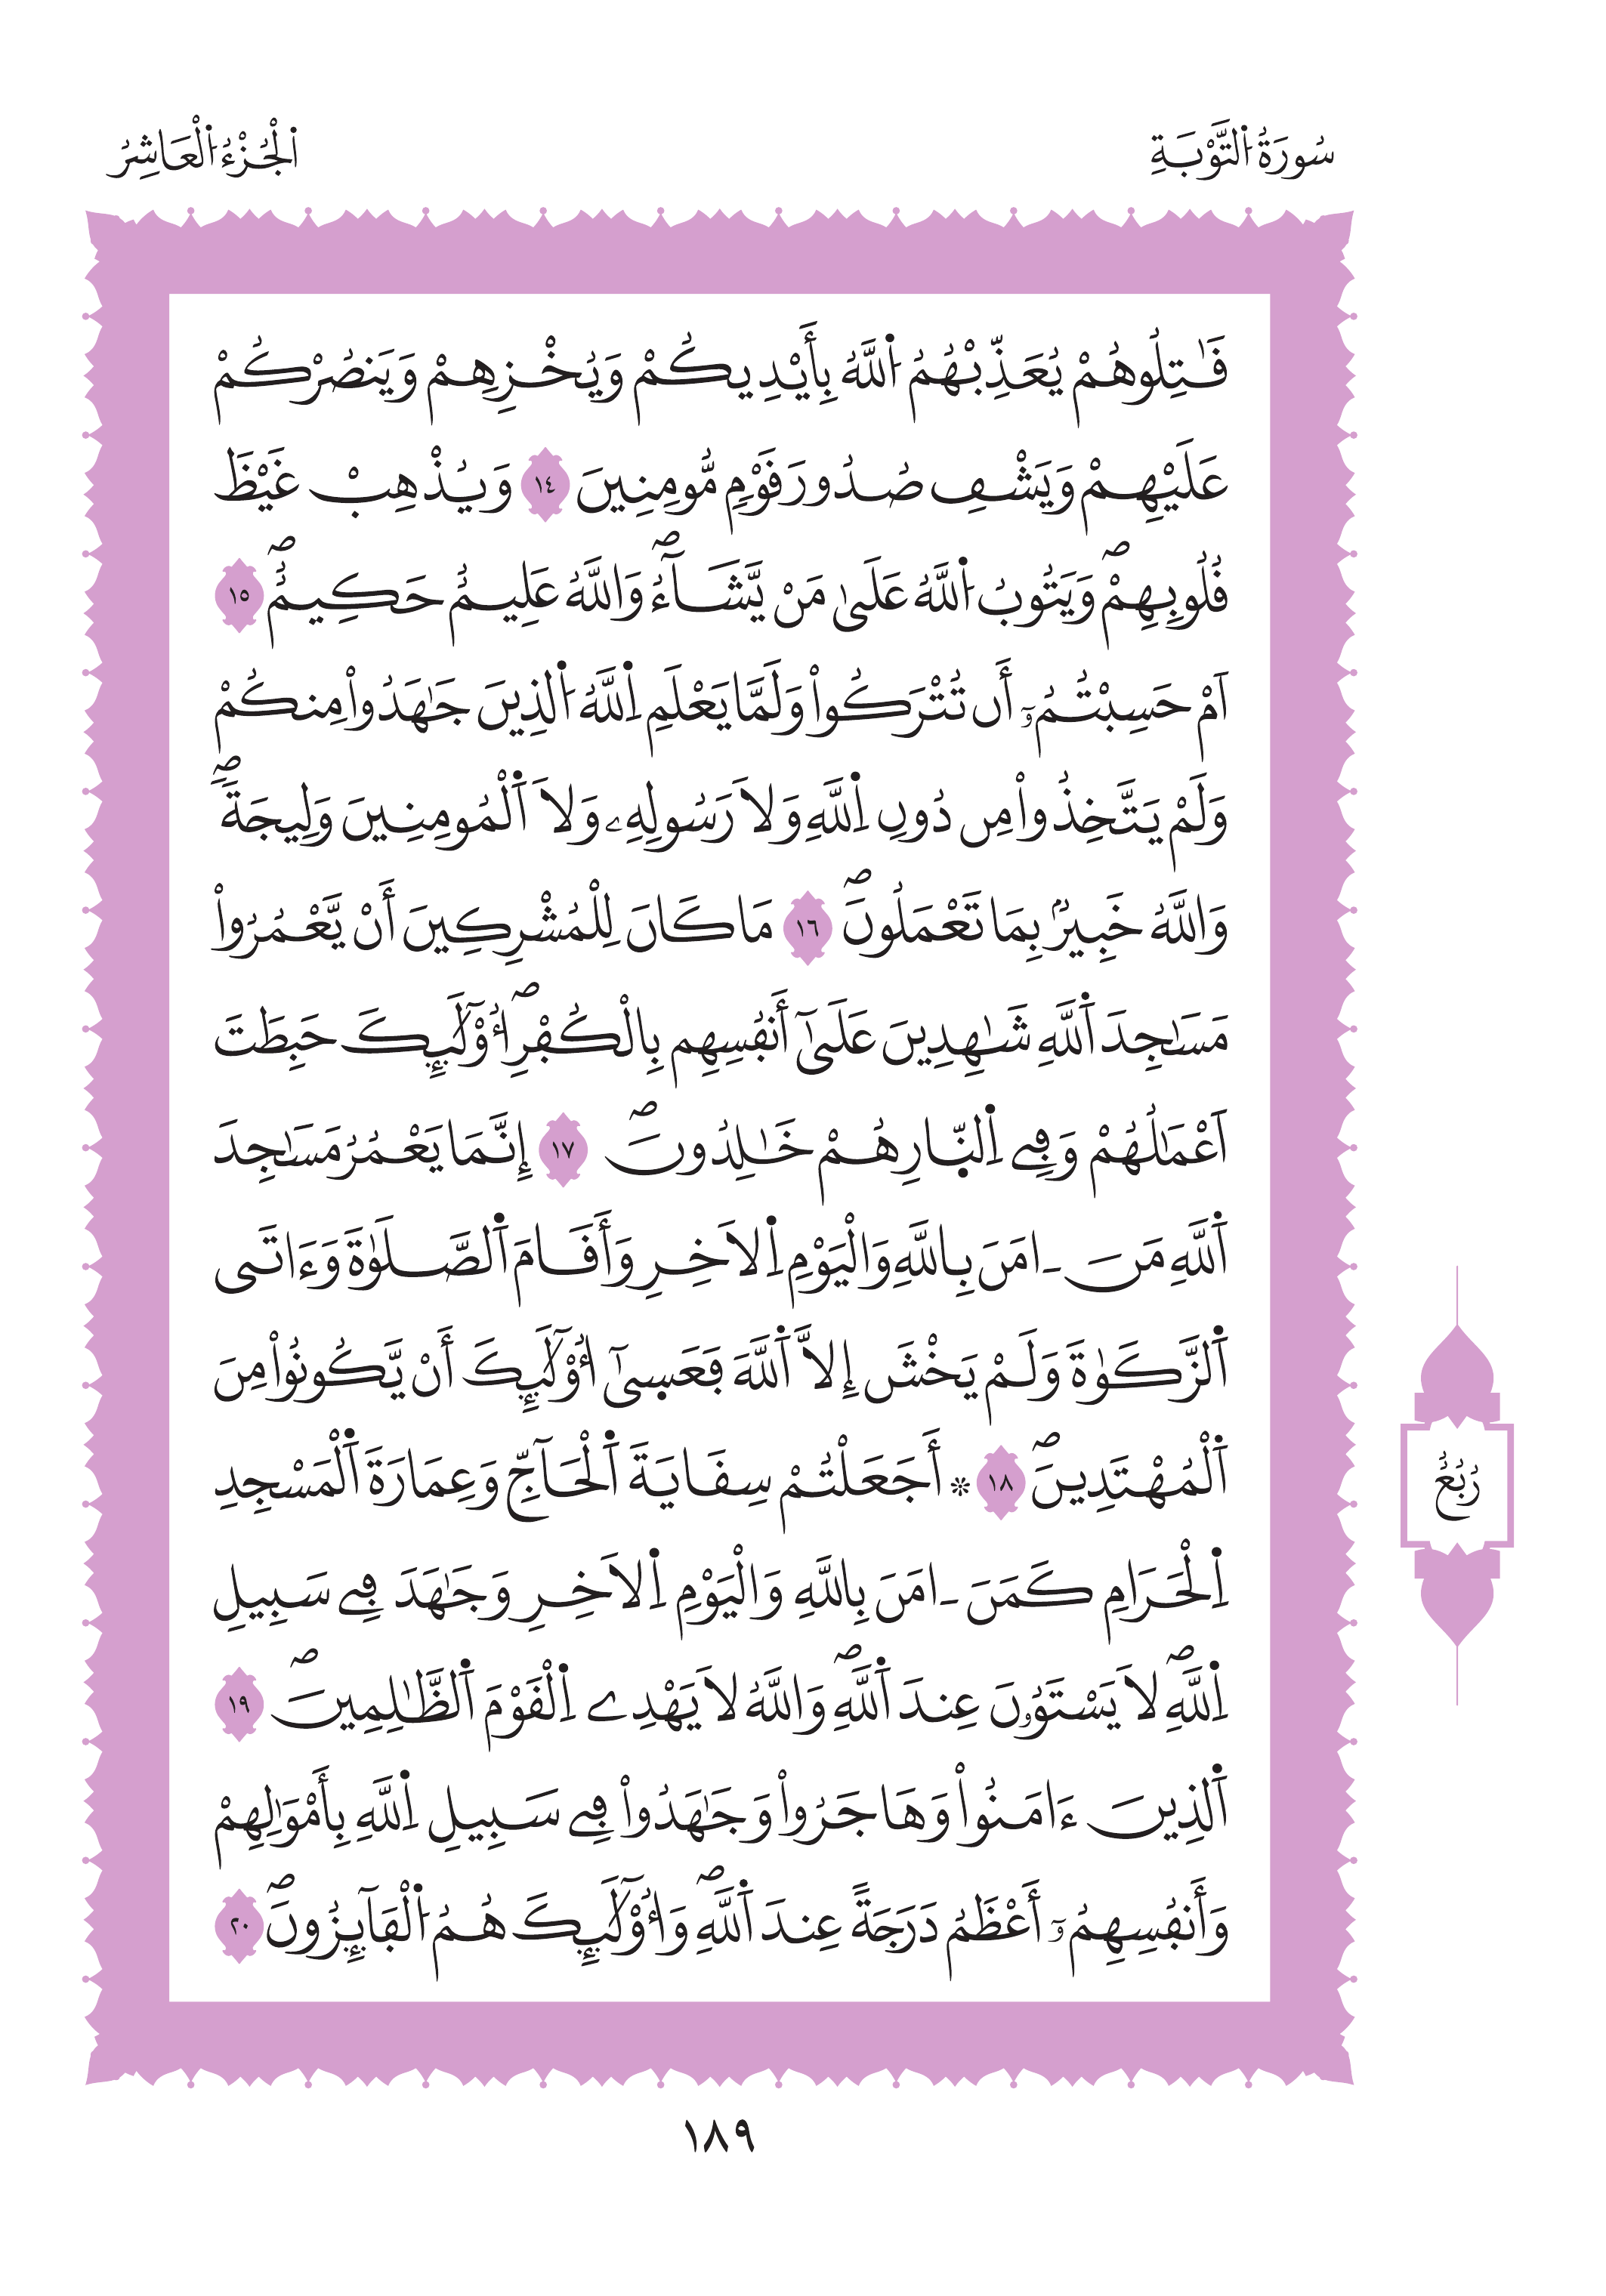 سُورَةُ اُ۬لتَّوْبَةِ
اَ۬لْجُزْءُ اُ۬لْعَاشِرُ
قَٰتِلُوهُمْ يُعَذِّبْهُمُ اُ۬للَّهُ بِأَيْدِيكُمْ وَيُخْزِهِمْ وَيَنصُرْكُمْ
عَلَيْهِمْ وَيَشْفِ صُدُورَ قَوْمٖ مُّومِنِينَ ١٤ وَيُذْهِبْ غَيْظَ
قُلُوبِهِمْۖ وَيَتُوبُ اُ۬للَّهُ عَلَىٰ مَنْ يَّشَآءُۖ وَاللَّهُ عَلِيمٌ حَكِيمٌۖ ١٥
اَمْ حَسِبْتُمُۥٓ أَن تُتْرَكُواْ وَلَمَّا يَعْلَمِ اِ۬للَّهُ اُ۬لذِينَ جَٰهَدُواْ مِنكُمْ
وَلَمْ يَتَّخِذُواْ مِن دُونِ اِ۬للَّهِ وَلَا رَسُولِهِۦ وَلَا اَ۬لْمُومِنِينَ وَلِيجَةٗۖ
وَاللَّهُ خَبِيرُۢ بِمَا تَعْمَلُونَۖ ١٦ مَا كَانَ لِلْمُشْرِكِينَ أَنْ يَّعْمُرُواْ
مَسَٰجِدَ اَ۬للَّهِ شَٰهِدِينَ عَلَىٰٓ أَنفُسِهِم بِالْكُفْرِۖ أُوْلَٰٓئِكَ حَبِطَتَ
اَعْمَٰلُهُمْ وَفِے اِ۬لنّ۪ارِ هُمْ خَٰلِدُونَۖ ١٧ إِنَّمَا يَعْمُرُ مَسَٰجِدَ
اَ۬للَّهِ مَنَ ـ امَنَ بِاللَّهِ وَالْيَوْمِ اِ۬لَاخِرِ وَأَقَامَ اَ۬لصَّلَوٰةَ وَءَاتَى
اَ۬لزَّكَوٰةَ وَلَمْ يَخْشَ إِلَّا اَ۬للَّهَ فَعَس۪ىٰٓ أُوْلَٰٓئِكَ أَنْ يَّكُونُواْ مِنَ
اَ۬لْمُهْتَدِينَۖ ١٨ * أَجَعَلْتُمْ سِقَايَةَ اَ۬لْحَآجِّ وَعِمَارَةَ اَ۬لْمَسْجِدِ
اِ۬لْحَرَامِ كَمَنَ ـ امَنَ بِاللَّهِ وَالْيَوْمِ اِ۬لَاخِرِ وَجَٰهَدَ فِے سَبِيلِ
اِ۬للَّهِۖ لَا يَسْتَوُۥنَ عِندَ اَ۬للَّهِۖ وَاللَّهُ لَا يَهْدِے اِ۬لْقَوْمَ اَ۬لظَّٰلِمِينَۖ ١٩
اَ۬لذِينَ ءَامَنُواْ وَهَاجَرُواْ وَجَٰهَدُواْ فِے سَبِيلِ اِ۬للَّهِ بِأَمْوَٰلِهِمْ
وَأَنفُسِهِمُۥٓ أَعْظَمُ دَرَجَةً عِندَ اَ۬للَّهِۖ وَأُوْلَٰٓئِكَ هُمُ اُ۬لْفَآئِزُونَۖ ٢٠
رُبُعٌ
١٨٩